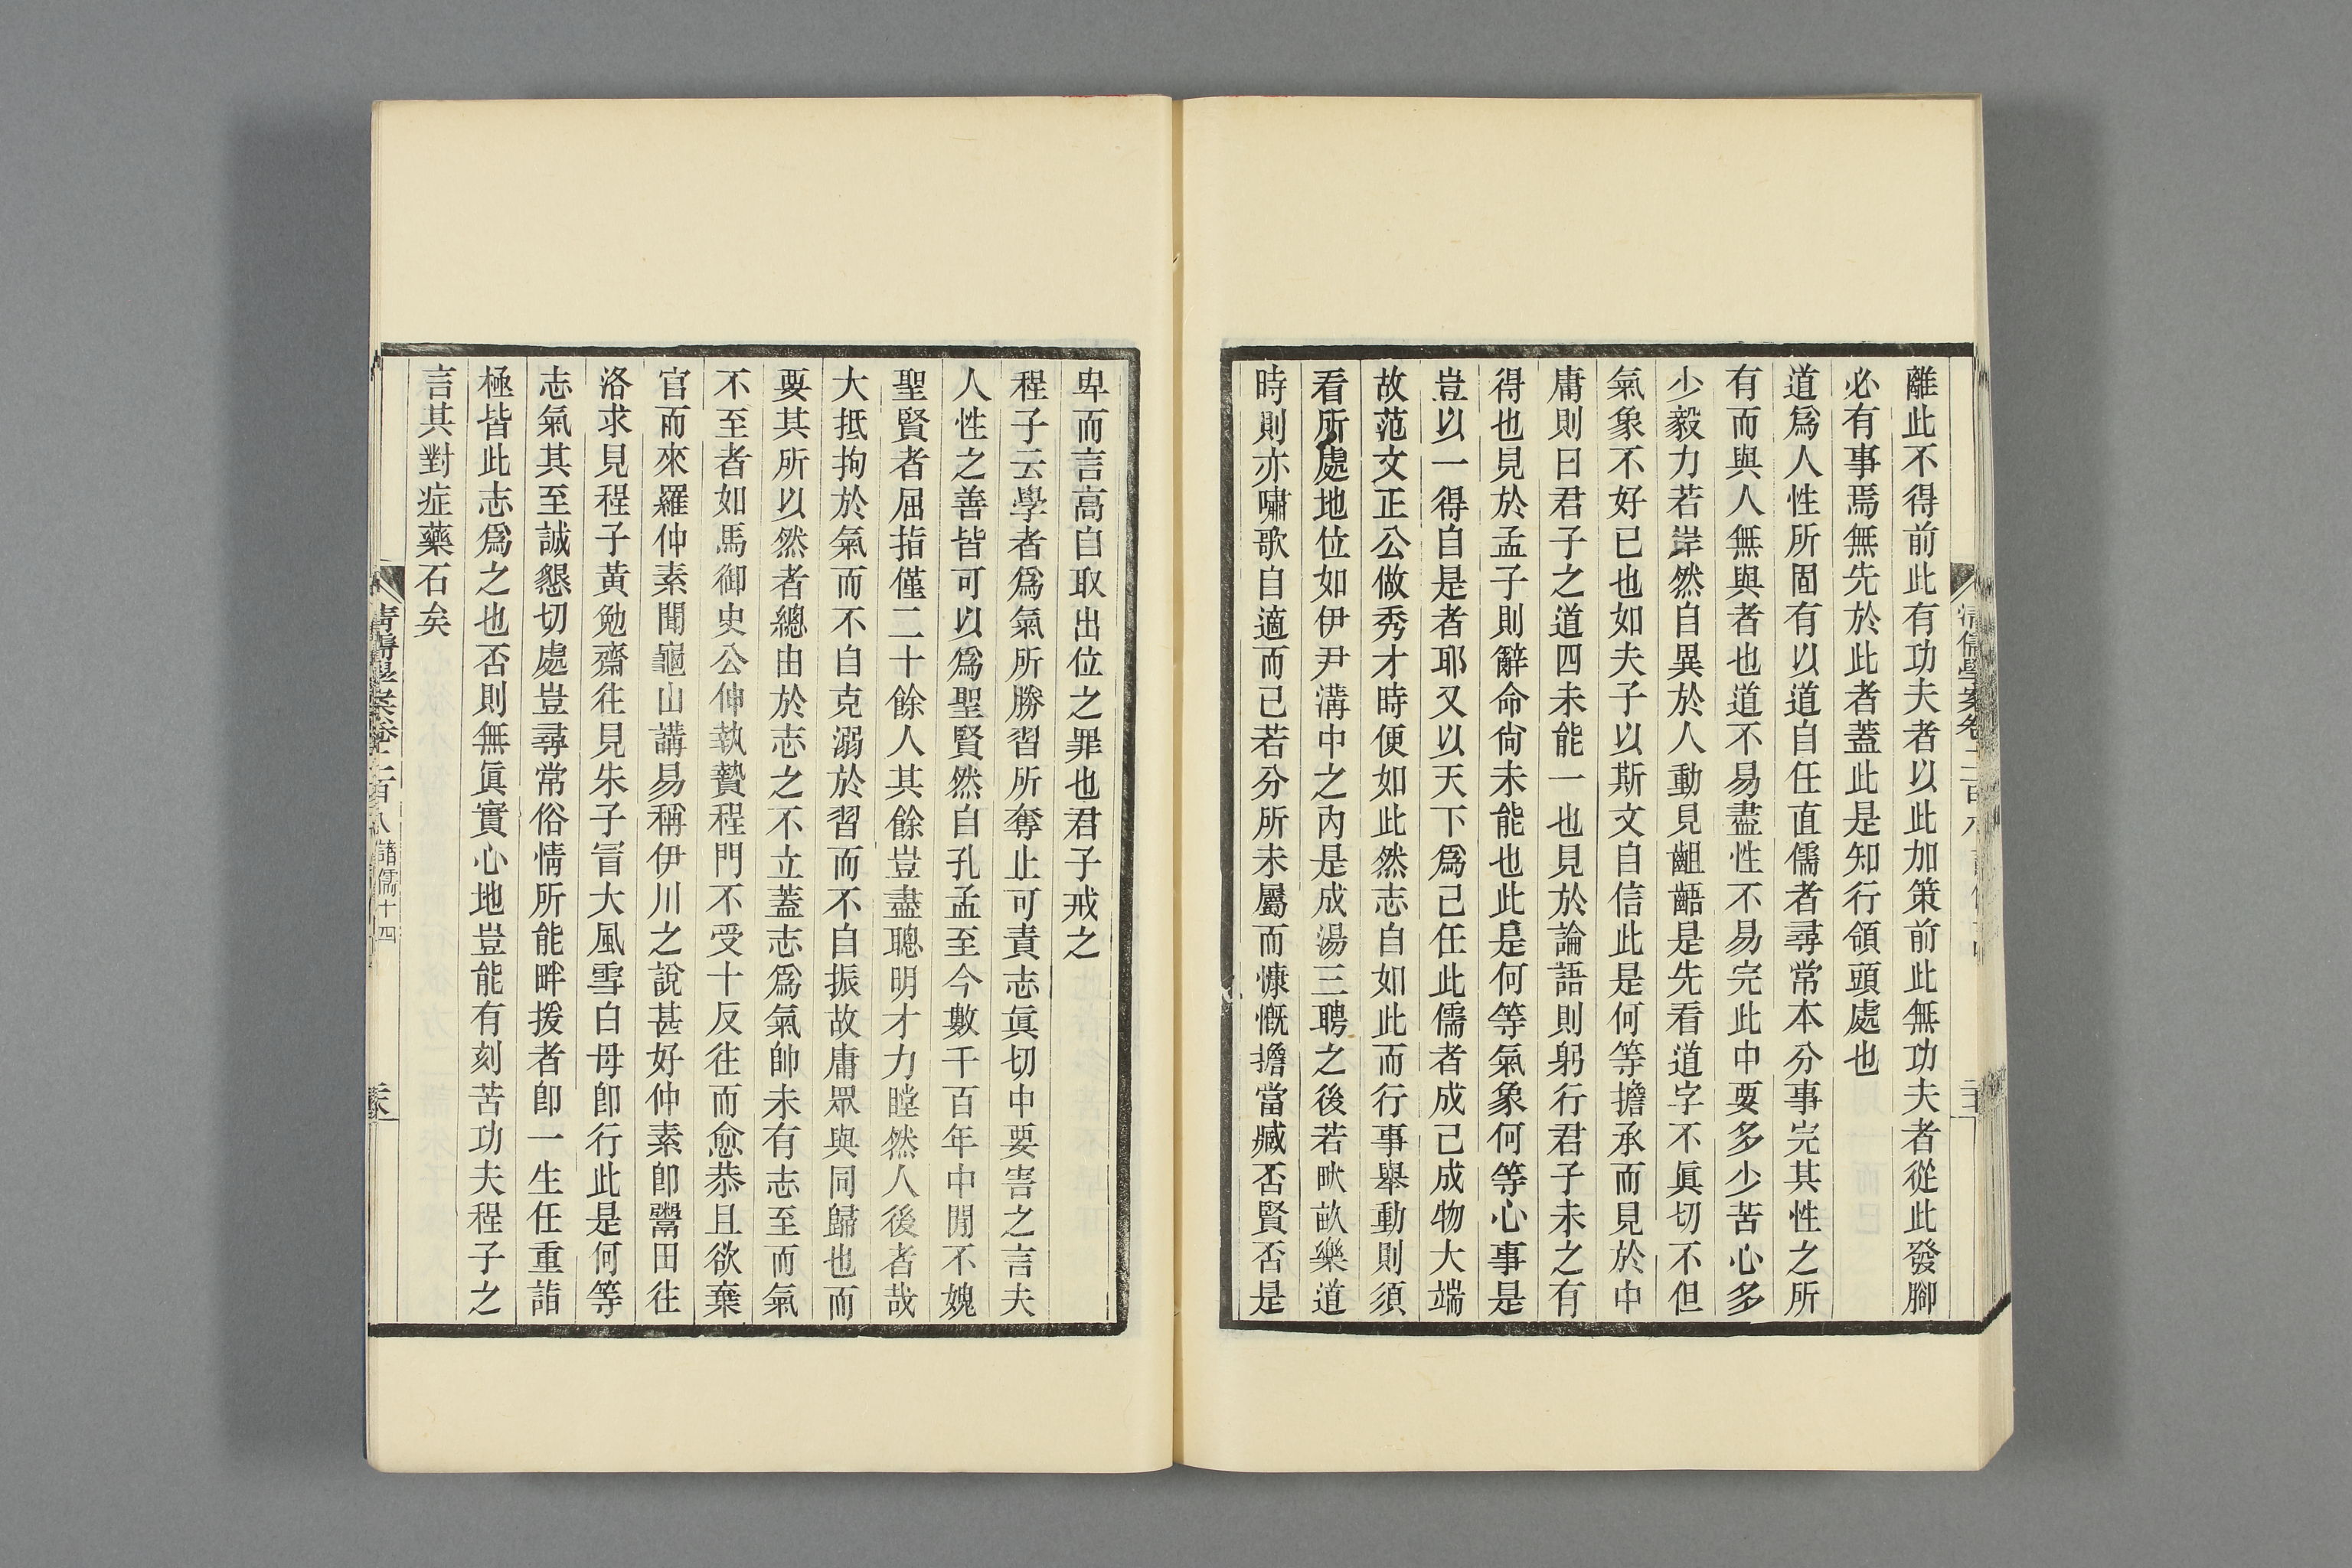 離此不得前此有功夫者以此加策前此無功夫者從此發腳
必有事焉無先於此者蓋此是知行領頭處也
道爲人性所固有以道自任直儒者尋常本分事完其性之所
有而與人無與者也道不易盡性不易完此中要多少苦心多
少毅力若岸然自異於人動見齟齬是先看道字不眞切不但
氣象不好已也如夫子以斯文自信此是何等擔承而見於中
庸則曰君子之道四未能一也見於論語則躬行君子未之有
得也見於孟子則辭命尙未能也此是何等氣象何等心事是
豈以一得自是者耶又以天下爲己任此儒者成己成物大端
故范文正公做秀才時便如此然志自如此而行事舉動則須
看所處地位如伊尹溝中之內是成湯三聘之後若畎畝樂道
時則亦嘯歌自適而已若分所未屬而慷慨擔當臧否賢否是
卑而言高自取出位之罪也君子戒之
程子云學者爲氣所勝習所奪止可責志眞切中要害之言夫
人性之善皆可以爲聖賢然自孔孟至今數千百年中閒不媿
聖賢者屈指僅二十餘人其餘豈盡聰明才力瞠然人後者哉
大抵拘於氣而不自克溺於習而不自振故庸眾與同歸也而
要其所以然者總由於志之不立蓋志爲氣帥未有志至而氣
不至者如馬御史公伸執贄程門不受十反往而愈恭且欲棄
官而來羅仲素聞龜山講易稱伊川之說甚好仲素卽鬻田往
洛求見程子黃勉齋往見朱子冒大風雪白母卽行此是何等
志氣其至誠懇切處豈尋常俗情所能畔援者卽一生任重詣
極皆此志爲之也否則無眞實心地豈能有刻苦功夫程子之
言其對症藥石矣
清儒學案卷二百八 諸儒十四